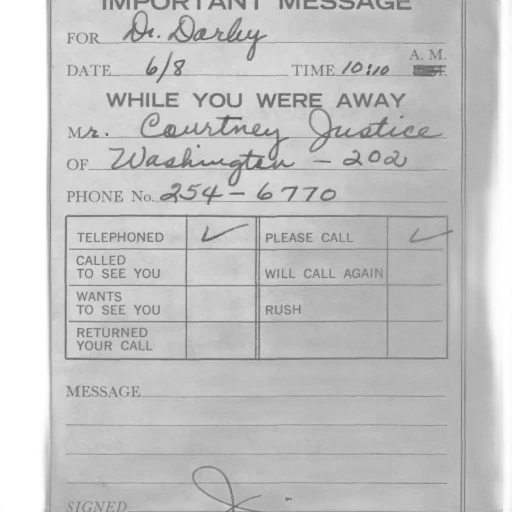 IMPORTANT MESSAGE
FOR Dr. Darby
DATE 6/8 TIME 10:10 A. M.
WHILE YOU WERE AWAY
Mr. Courtney Justice
OF Washington - 202
PHONE No. 254-6770
TELEPHONED ✓ PLEASE CALL ✓
CALLED TO SEE YOU WILL CALL AGAIN
WANTS TO SEE YOU RUSH
RETURNED YOUR CALL
MESSAGE
SIGNED